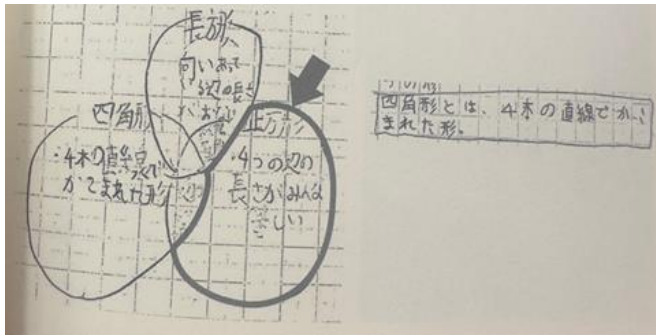 長方形
向いあって
いる辺の長さ
がおなじ
四角形
・4本の直線で
かこまれた形
正方形
・4つの辺の
長さがみんな
等しい
四角形とは、4本の直線でかこ
まれた形。